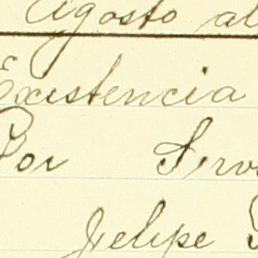 Agosto al
Existencia
Por Serv
Felipe